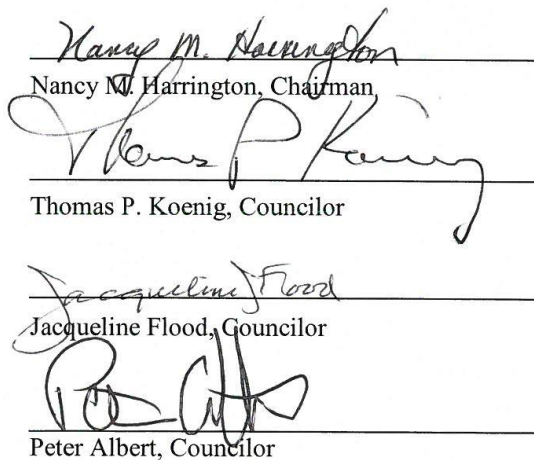 Nancy M. Harrington
Nancy M. Harrington, Chairman
Thomas P. Koenig
Thomas P. Koenig, Councilor
Jacqueline Flood
Jacqueline Flood, Councilor
Peter Albert, Councilor